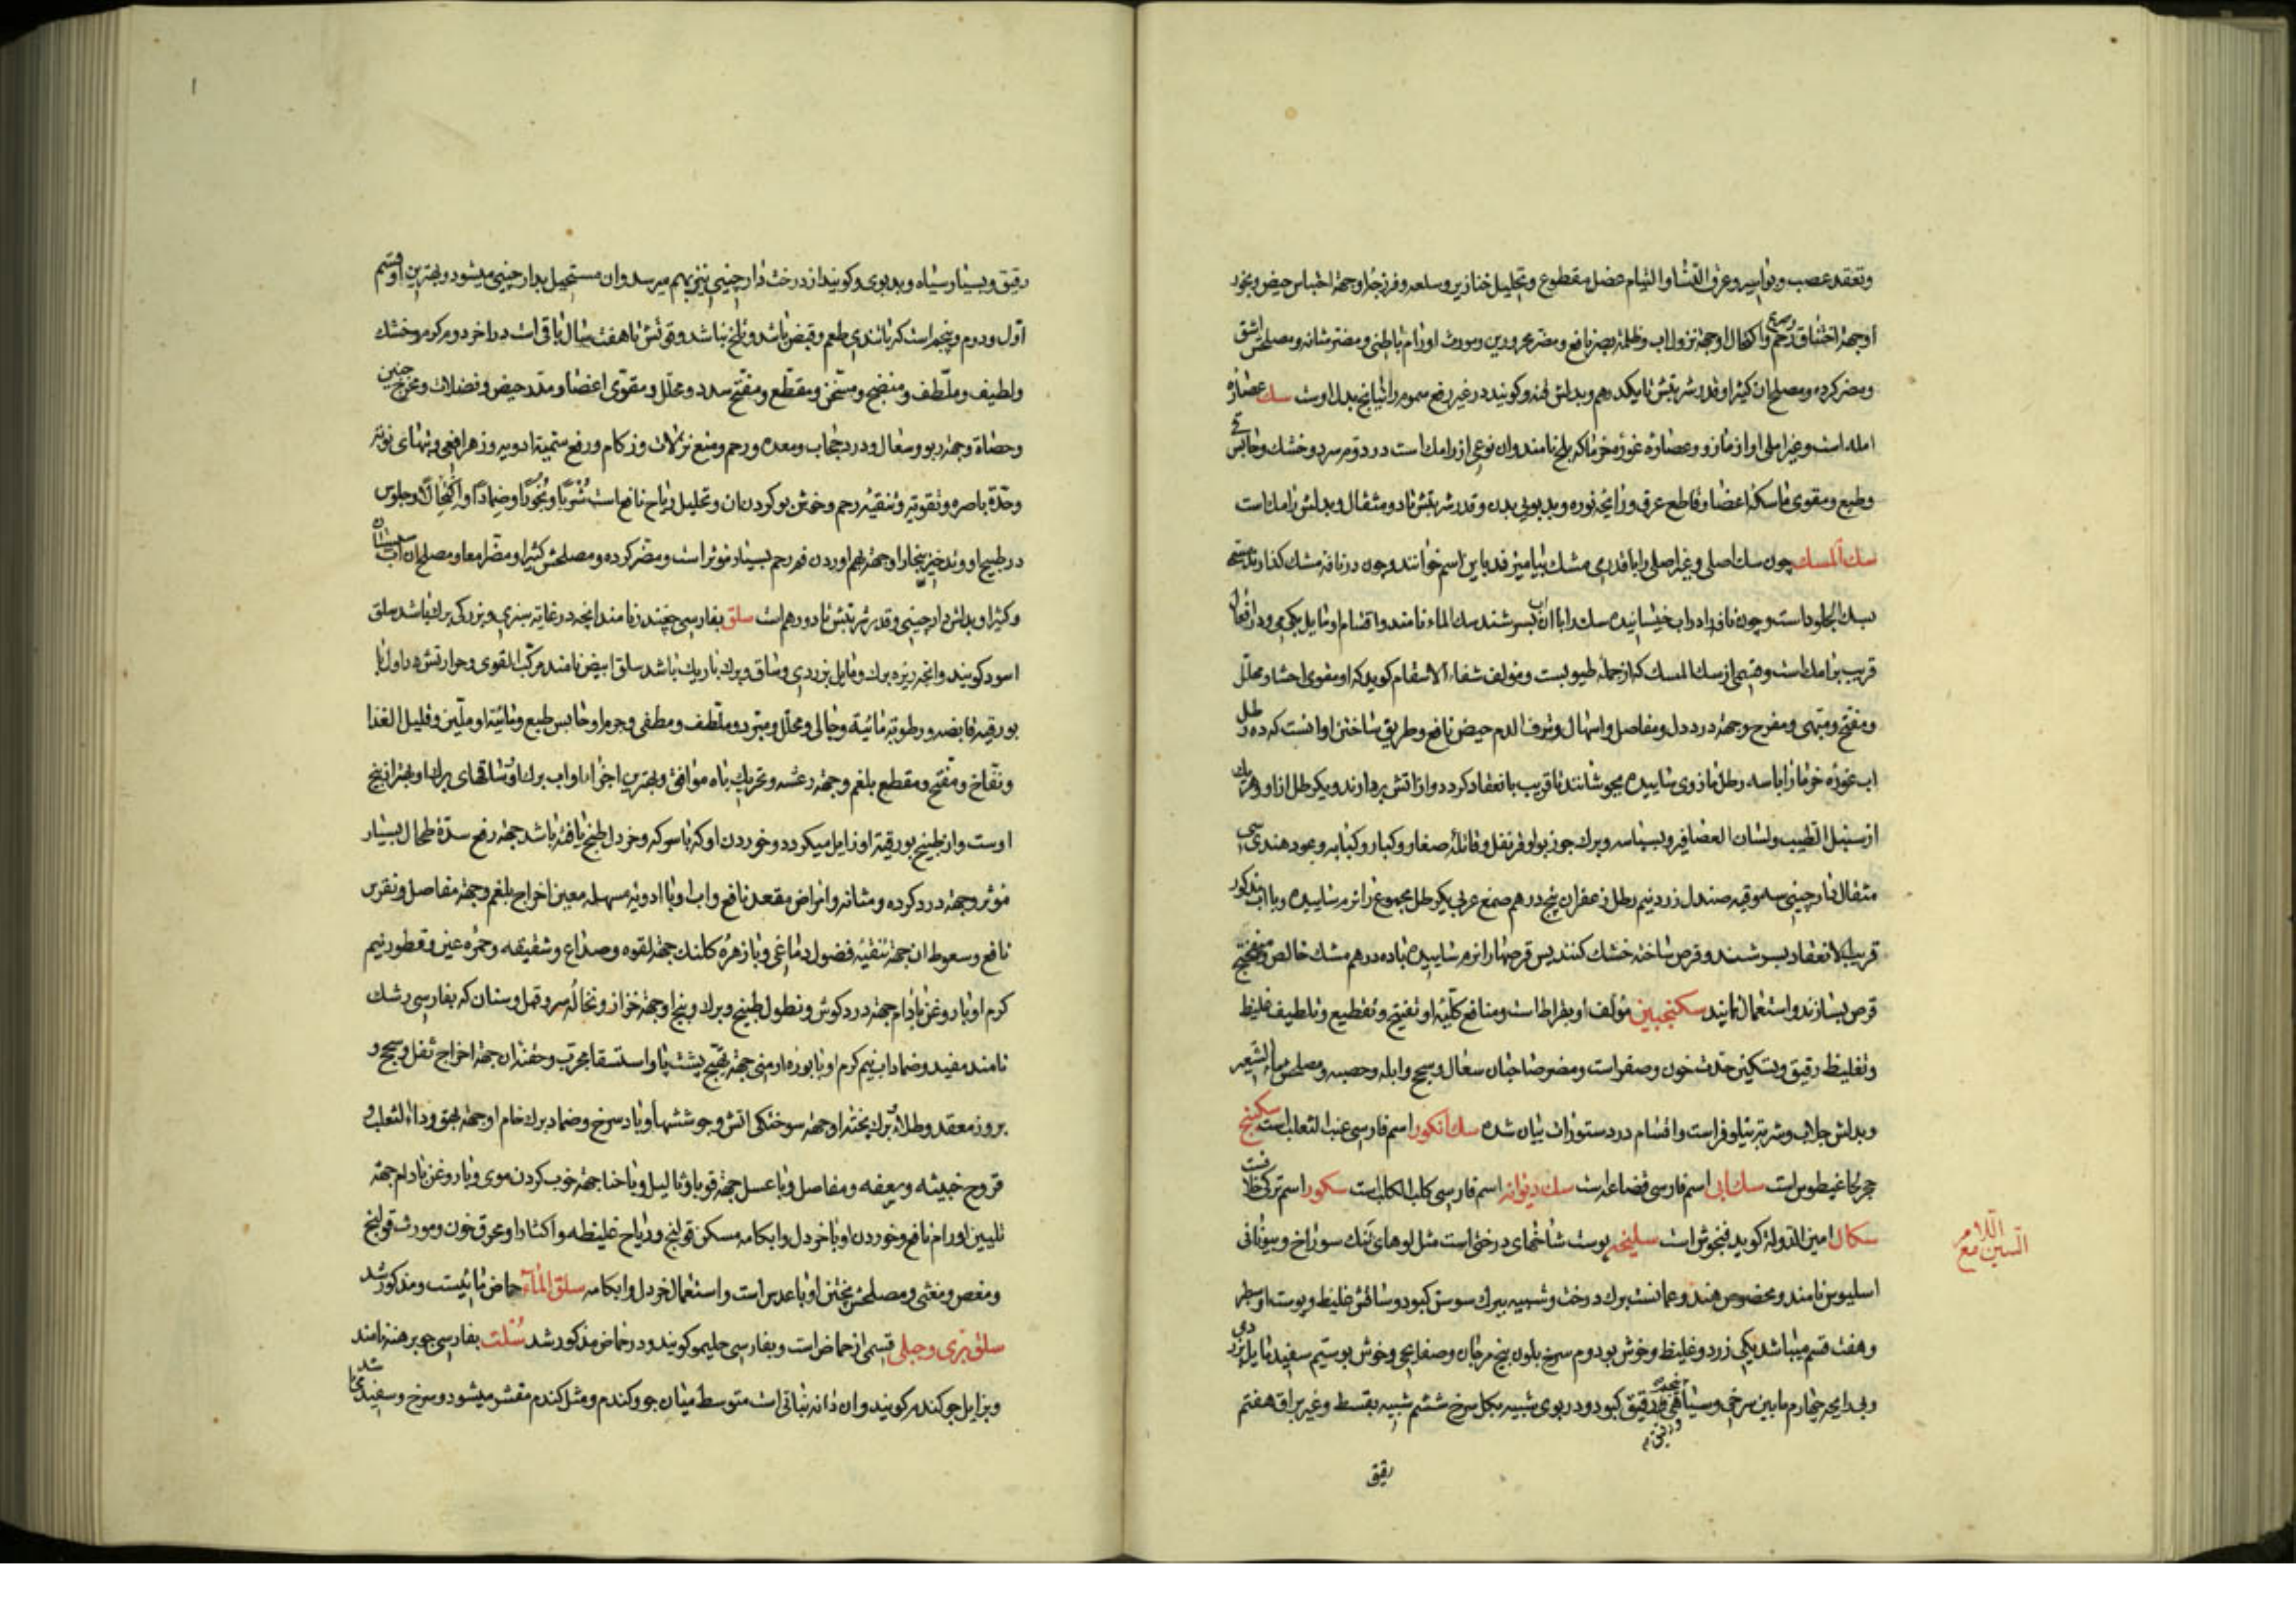 وتعقد عصب وبواسیر وعرق النسا والتیام عضل مقطوع وتحلیل خنازیر وسلعه وفرزجهٔ او جهة احتباس حیض وبخور
او جهة اختناق رحم وصرع واکتحال او جهة نزول اب وظلمة بصر نافع ومضر محرورین ومورث اورام باطنی ومضر مثانه ومصلحش اشق
ومضر کرده ومصلح ان کثیرا وقدر شربتش تا یکدرهم وبدلش قنه وکویند در غیر رفع سموم راتیانج بدل اوست سك عصارهٔ
امله است وغیر املی او از مازو وعصارهٔ غورهٔ خرما که بلح نامند وان نوعی از رامك است در دوم سرد وخشك وحابس
وطبع ومقوی ماسکهٔ اعضا وقاطع عرق ورایحهٔ نوره وبدبویی بدن وقدر شربتش تا دو مثقال وبدلش رامك است
سك المسك چون سك اصلی وغیر اصلی را با قدری مشك بیامیزند باین اسم خوانند وچون در نافه مشك کذارند
سك الجلود است وچون نافه را در اب خیسانیده سك را با ان اب بسرشند سك الماء نامند واقسام او مایل بکرمی ودر افعال
قریب برامك است وقسمی از سك المسك که از جمله طیوبست ومؤلف شفاء الاسقام کوید که او مقوی احشا ومحلل
ومفتح ومبهی ومفرح وجهة درد دل ومفاصل واسهال ونزف الدم حیض نافع وطریق ساختن او انست که ده رطل
اب غورهٔ خرما را با سه رطل مازوی ساییده بجوشانند تا قریب بانعقاد کردد واز اتش بردارند ویکرطل از او وهریك
از سنبل الطیب ولسان العصافیر وبسباسه وبرك جوز بوا وقرنفل وقاقلهٔ صغار وکبار وکبابه وعود هندی سی
مثقال دارچینی سه وقیه صندل زرد نیم رطل زعفران پنج درهم صمغ عربی یکرطل مجموع را نرم ساییده وبا اب مذکور
قریب الانعقاد بسرشند وقرص ساخته خشك کنند پس قرصها را نرم ساییده با ده درهم مشك خالص
قرص بسازند واستعمال نمایند سکنجبین مؤلف او بقراط است ومنافع کلیهٔ او تفتیح وتقطیع وتلطیف غلیظ
وتغلیظ رقیق وتسکین حدت خون وصفراست ومضر صاحبان سعال وسحج وابله وحصبه ومصلحش ماء الشعیر
وبدلش جلاب وشربت نیلوفر است واقسام در دستورات بیان شده سك انکور اسم فارسی عنب الثعلب است سکسنج
حجر غاغیطوس است سك ابی اسم فارسی قضاعه است سك دیوانه اسم فارسی کلب الکلب است سکور اسم ترکی خلاف است
سکال امین الدوله کوید فنجوش است سلیخه پوست شاخهای درختی است مثل لوهای تنك سوراخ وبیونانی
اسلیوس نامند ومخصوص هند وعمانست برك درخت وشبیه ببرك سوسن کبود وساقش غلیظ وپوست او سطبر
وهفت قسم میباشد یکی زرد وغلیظ وخوش بو دوم سرخ بلون بیخ مرجان وصفایحی وخوش بو سیم سفید مایل بزردی
وبی رایحه چهارم مابین سرخی وسیاهی پنجم رقیق کبود ودر بوی شبیه بکل سرخ ششم شبیه بقسط وغیر براق هفتم
رقیق
السین مع
اللام
رقیق وبسیار سیاه وبدبوی وکویند از درخت دارچینی نیز بهم میرسد وان مستحیل بدارچینی میشود وبهترین او قسم
اول ودوم وپنجم است که با تندی طعم وقبض باشد وتلخ نباشد وقوتش تا هفت سال باقی است در اخر دوم کرم وخشك
ولطیف وملطف ومنضج ومسخن ومقطع ومفتح سدد ومحلل ومقوی اعضا ومدر حیض وفضلات ومخرج جنین
وحصاة وجهة ربو وسعال ودرد حجاب ومعده ورحم ومنع نزلات وزکام ورفع سمیة ادویه وزهر افعی وتبهای نوبة
وحدة باصره وتقویة وتنقیهٔ رحم وخوش بو کردن ان وتحلیل ریاح نافع است شربًا وبخورًا وضمادًا واکتحالًا وجلوس
در طبیخ او ونیز بخار او جهة بهم اوردن فم رحم بسیار موثر است ومضر کرده ومصلحش کثیرا ومضر امعا ومصلح ان
وکثیرا وبدلش دارچینی وقدر شربتش تا دو درهم است سلق بفارسی چغندر نامند انچه در غایة سبزی وبزرکی برك باشد سلق
اسود کویند وانچه ریزه برك ومایل بزردی وساق وبرك باریك باشد سلق ابیض نامند مرکب القوی وحرارتش در اول با
بورقیهٔ قابضه ورطوبة مائیه وجالی ومحلل ومبرد وملطف ومطفی وجرم او حابس طبع ومائیهٔ او ملین وقلیل الغذا
ونفاخ ومفتح ومقطع بلغم وجهة رعشه وتحریك باه موافق وبهترین اجزاء او اب برك وساقهای برك او وبهتر از بیخ
اوست واز طبیخ بورقیة او زایل میکردد وخوردن او که با سرکه وخردل طبخ یافته باشد جهة رفع سدهٔ طحال بسیار
موثر وجهة درد کرده ومثانه وامراض مقعد نافع واب او با ادویهٔ مسهله معین اخراج بلغم وجهة مفاصل ونقرس
نافع وسعوط ان جهة تنقیهٔ فضول دماغی وبا زهرهٔ کلنك جهة لقوه وصداع وشقیقه وحمرهٔ عین وقطور نیم
کرم او با روغن بادام جهة درد کوش ونطول طبیخ وبرك وبیخ او جهة خزاز ونخالهٔ سر وقمل وسنان که بفارسی رشك
نامند مفید وضماد اب نیم کرم او با بورهٔ ارمنی جهة تهیج پشت پا واستسقا مجرب وحقنه ان جهة اخراج ثفل وسحج و
بروز مقعد وطلاء برك پخته او جهة سوختکی اتش وجوششها وباد سرخ وضماد برك خام او جهة بهق وداء الثعلب و
قروح خبیثه وسعفه ومفاصل وبا عسل جهة قوبا وثالیل وبا حنا جهة خوب کردن موی وبا روغن بادام جهة
تلیین اورام نافع وخوردن او با خردل وابکامه مسکن قولنج وریاح غلیظه واکثار او محرق خون ومورث قولنج
ومغص ومغثی ومصلحش پختن او با عدس است واستعمال خردل وابکامه سلق الماء حماض مائیست ومذکور شد
سلق بری وجبلی قسمی از حماض است وبفارسی حلیمو کویند ودر حماض مذکور شد سلت بفارسی جو برهنه نامند
وبزابل جو کندم کویند وان دانه نباتی است متوسط میان جو وکندم ومثل کندم مقشر میشود وسرخ وسفید